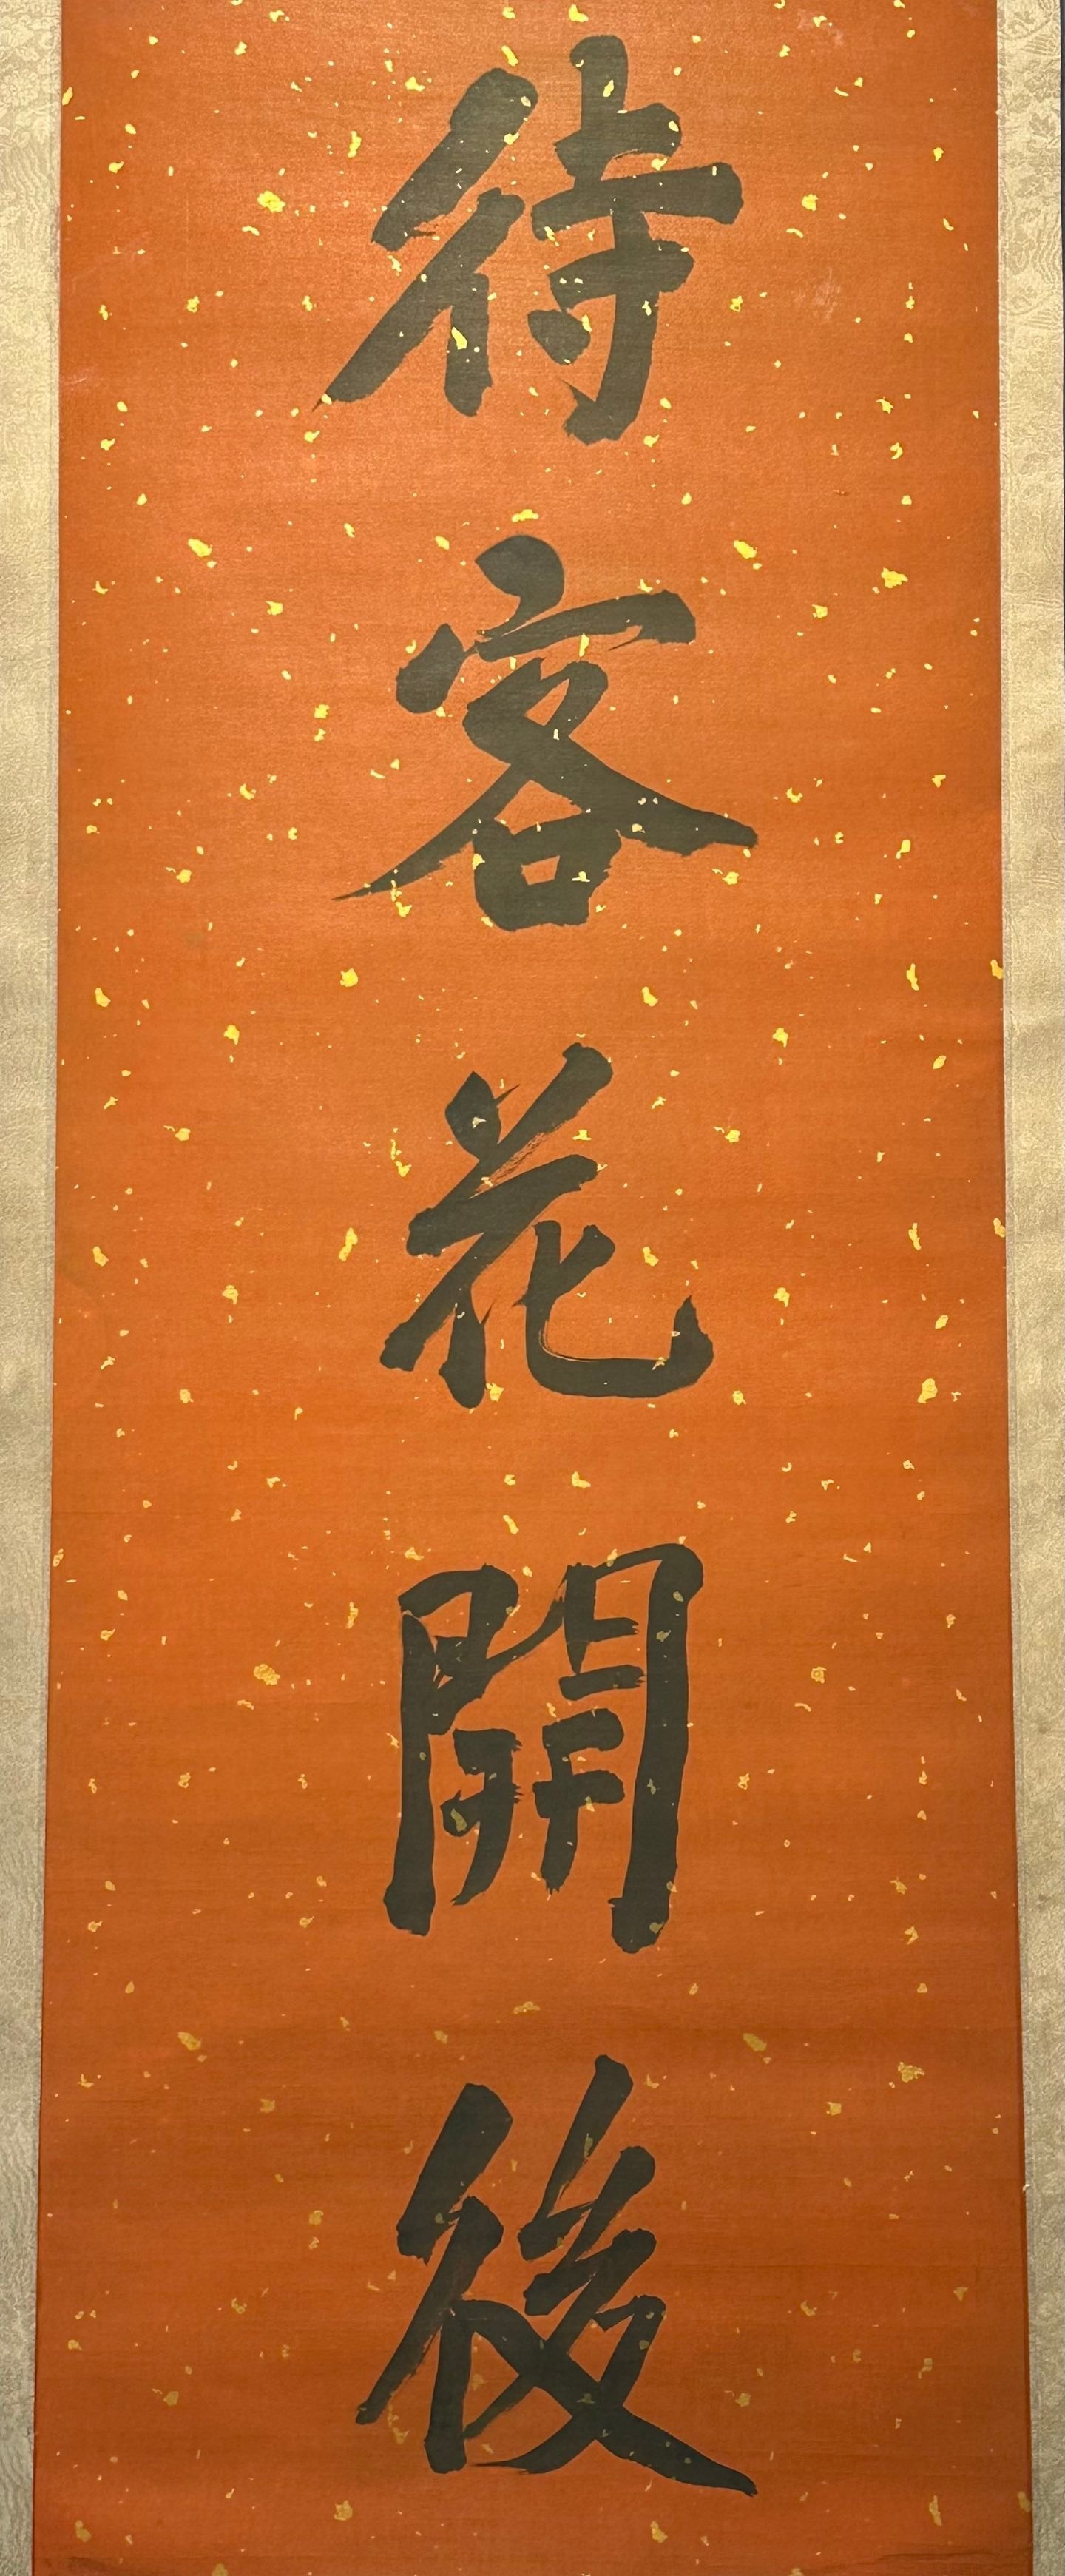 待客花開後